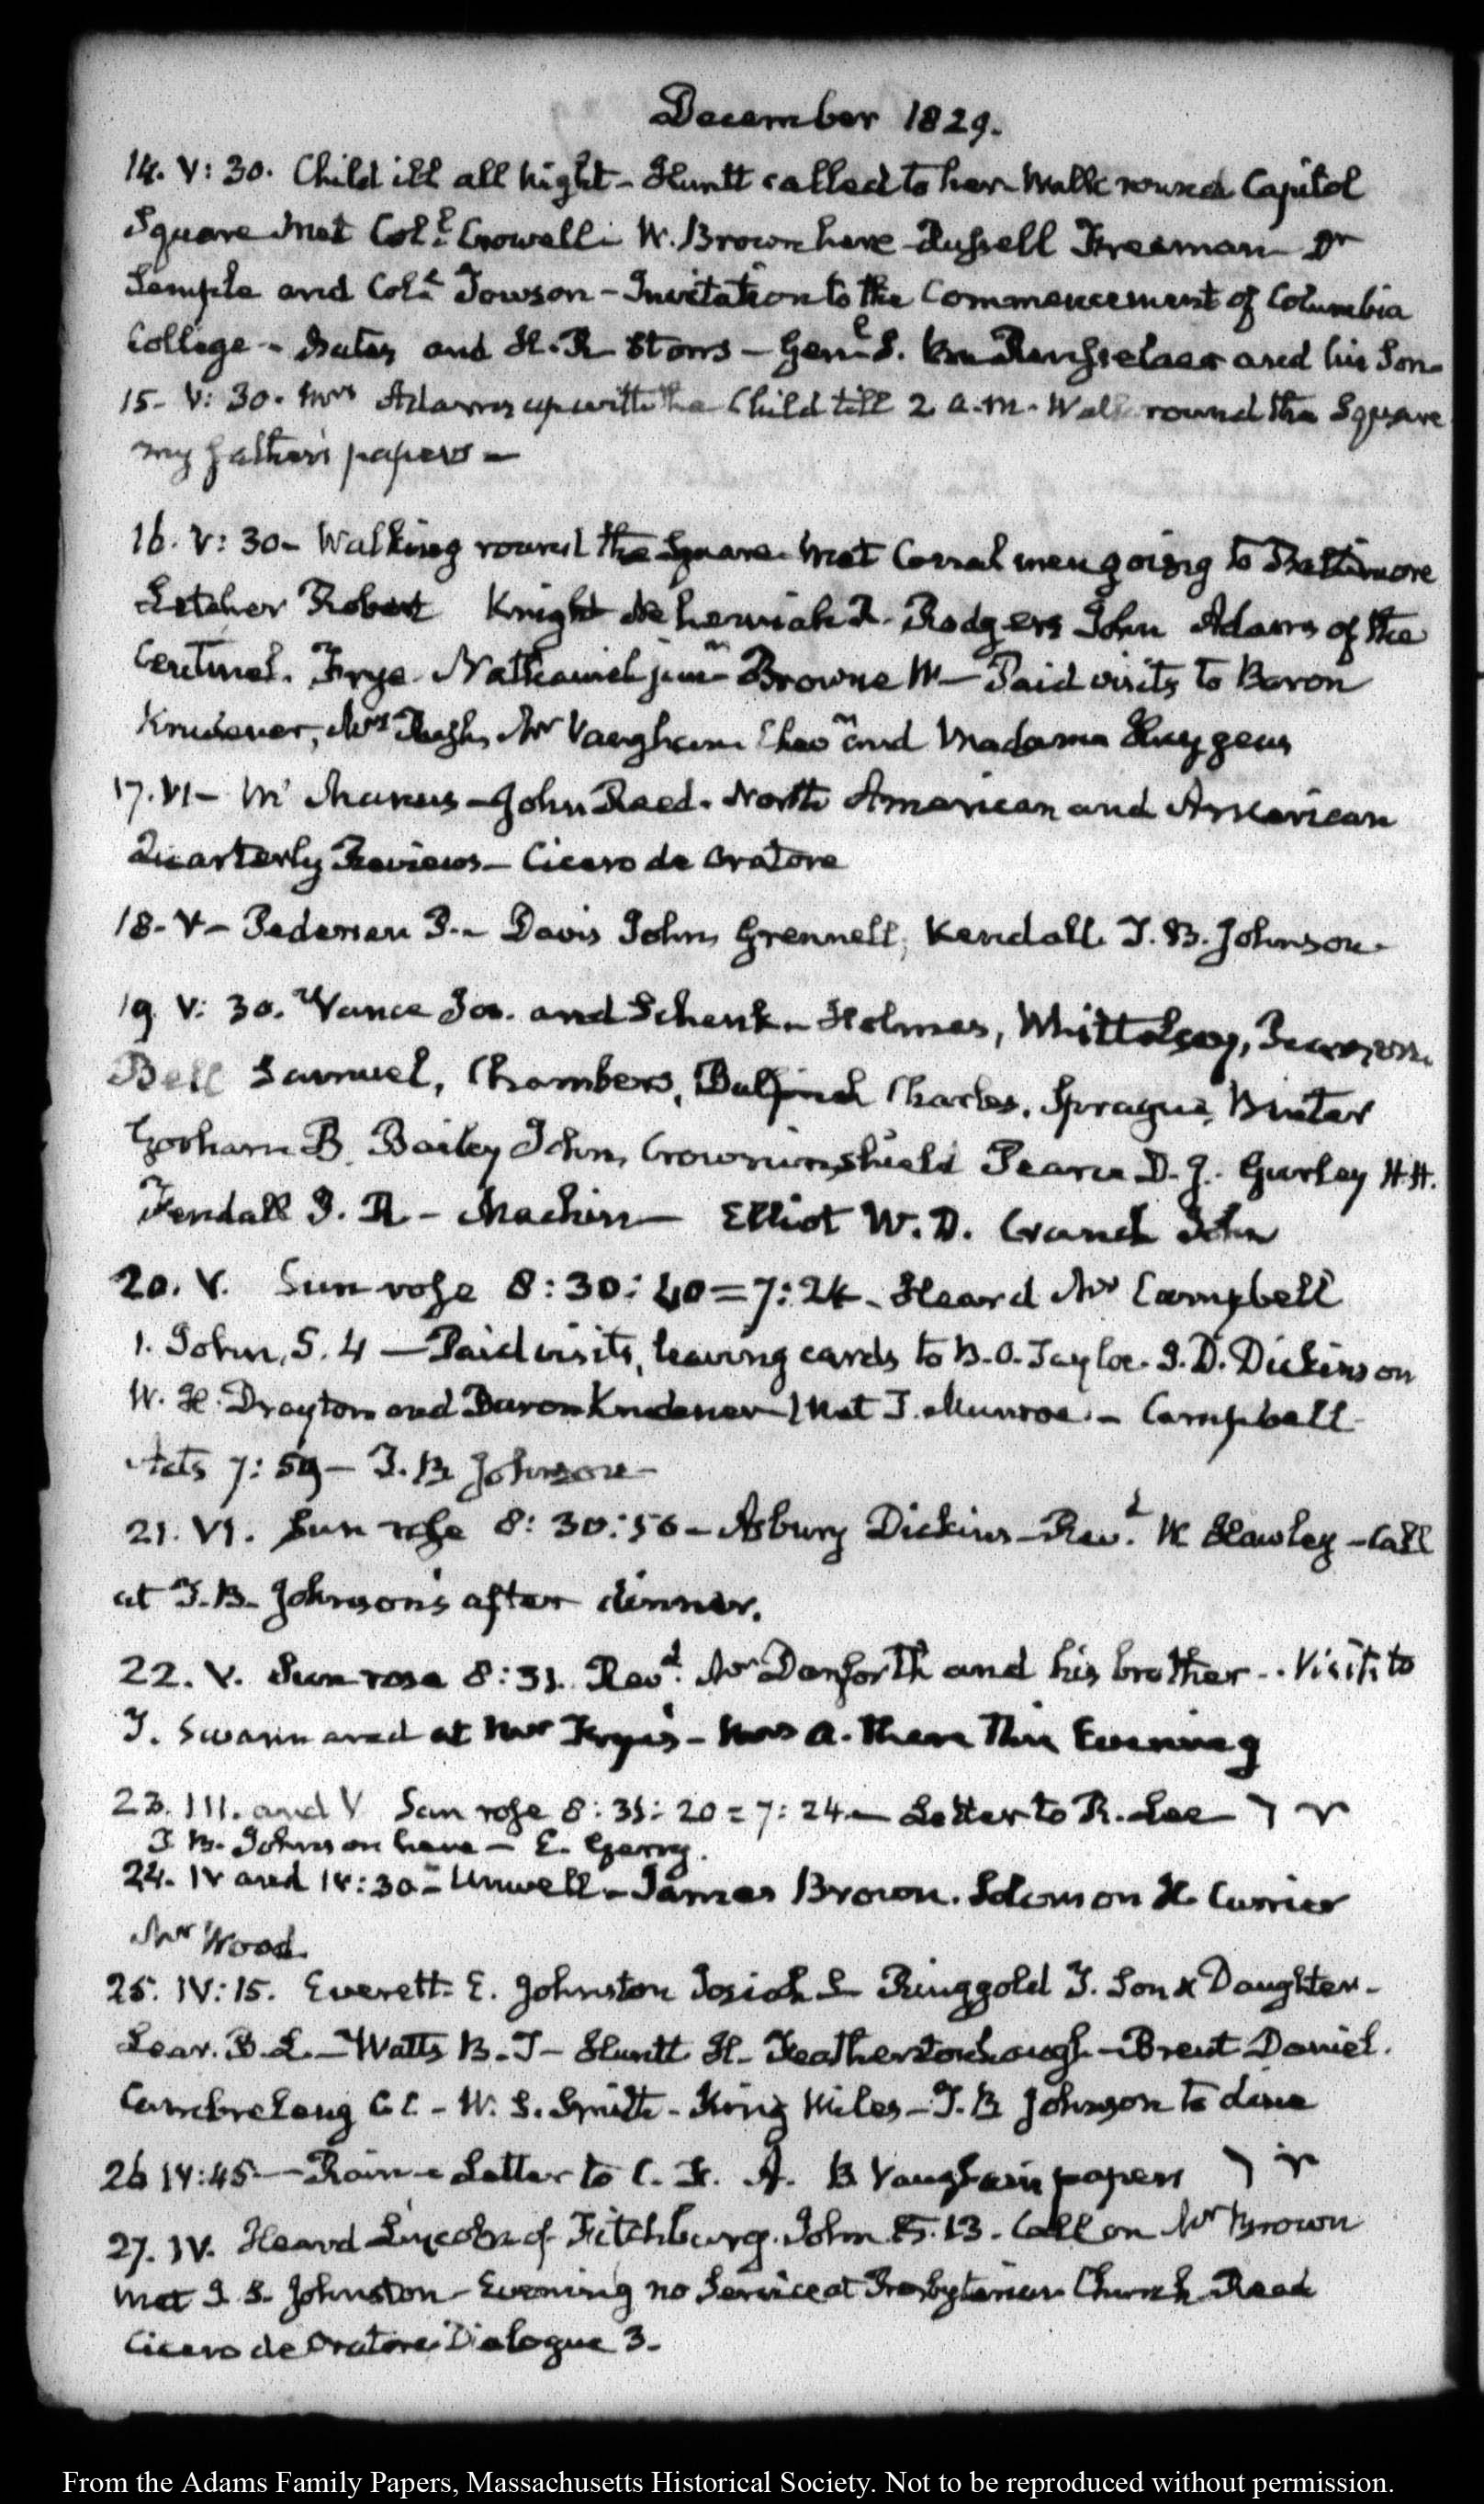 December 1829.
14. V: 30. Child ill all night – Huntt called to her – Walk round Capitol
Square Met Coll. Crowell – W. Brown here – Russell Freeman – Dr
Semple and Coll. Towson – Invitation to the Commencement of Columbia
College – Bates and H. R Storrs – Genl. S. Van Rensselaer and his Son –
15. V: 30. Mrs Adams up with the Child till 2 a.m. Walk round the Square
my father's papers –
16. V: 30 – Walking round the Square. Met going to Baltimore
Letcher Robert Knight Nehemiah R. Rodgers John Adams of the
Centinel. Frye Nathaniel junr Browne W – Paid visits to Baron
Krudener, Mrs Rush, Mr Vaughan Chevr and Madame Huygens
17. VI – John Reed. North American and American
Quarterly Reviews – Cicero de Oratore
18. V – Pedersen P. – Davis John, Grennell, Kendall. T. B. Johnson –
19. V: 30. Vance Jos. and Schenk – Holmes, Whittlesey,
Bell Samuel, Chambers, Bulfinch Charles, Sprague,
Gorham B. Bailey John, Crowninshield Pearce D. J. Gurley H.H.
Kendall J. R – Machin – Elliot W. D. Cranch John
20. V. Sun rose 8:30:40 = 7:24. Heard Mr Campbell
1. John, 5. 4 – Paid visits, leaving cards to B. O. Tayloe. J. D. Dickinson
W. H. Drayton and Baron Krudener – Met J. Munroe – Campbell
Acts 7: 59 – T. B. Johnson –
21. VI. Sun rose 8:30:56 – Asbury Dickins – Revd. W Hawley – Call
at T. B. Johnson's after dinner.
22. V. Sun rose 8:31. Revd. Mr Danforth and his brother – Visit to
T. Swann and at Mr Frye's – Mrs A. there this Evening
23. III. and V Sun rose 8:31:20 = 7:24 – Letter to R. Lee
T. B. Johnson here – E. Gerry.
24. IV and IV:30 – Unwell – James Brown. Solomon H. Currier
Mr Wood.
25. IV:15. Everett E. Johnston Josiah S – Ringgold T. Son & Daughter –
Lear. B. L. – Watts B. T – Huntt H – Featherstonhaugh – Brent Daniel.
Cambreleng C. C. – W. S. Smith – King Miles – T. B Johnson to dine
26 IV:45 – Rain – Letter to C. F. A. B Vaughan papers
27. IV. Heard Lincoln of Fitchburg. John 15. 13. Call on Mr Brown
met J. S. Johnston – Evening no Service at Presbyterian Church Read
Cicero de Oratore Dialogue 3.
From the Adams Family Papers, Massachusetts Historical Society. Not to be reproduced without permission.